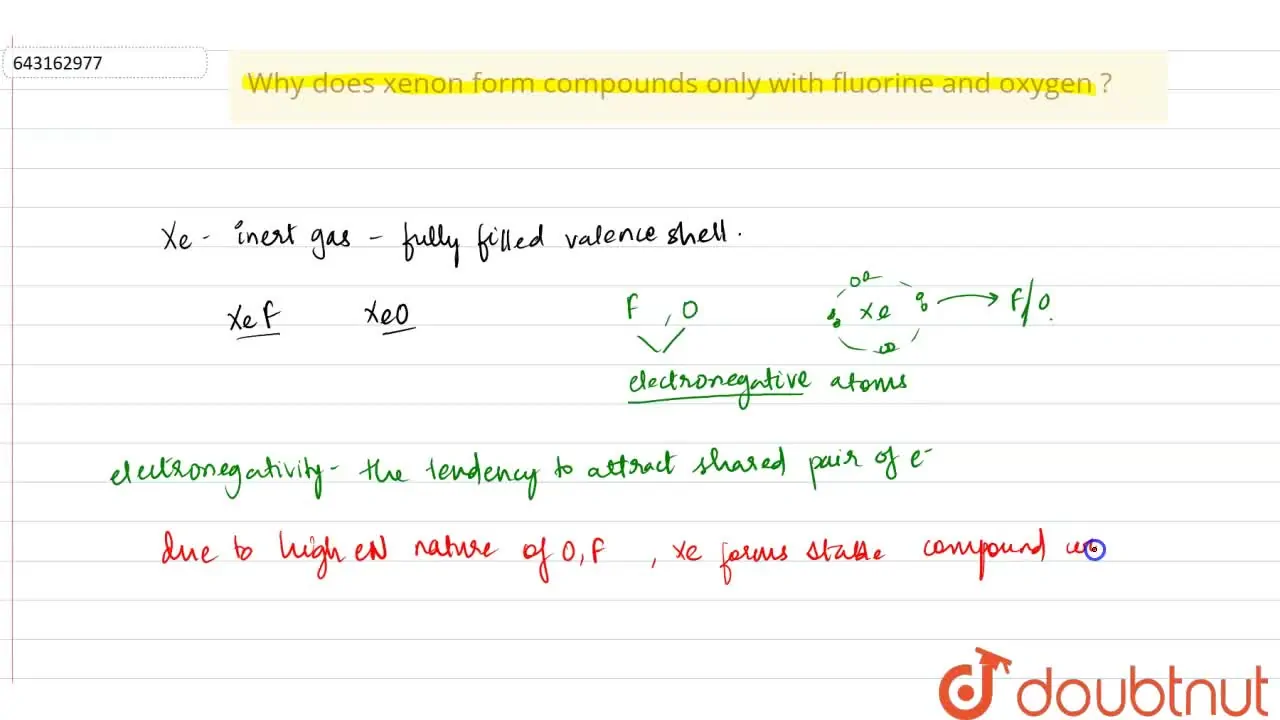 643162977
Why does xenon form compounds only with fluorine and oxygen ?
Xe - inert gas - fully filled valence shell.
XeF XeO F , O Xe F/O
electronegative atoms
electronegativity - the tendency to attract shared pair of e-
due to high eN nature of O, F , Xe forms stable compound
doubtnut